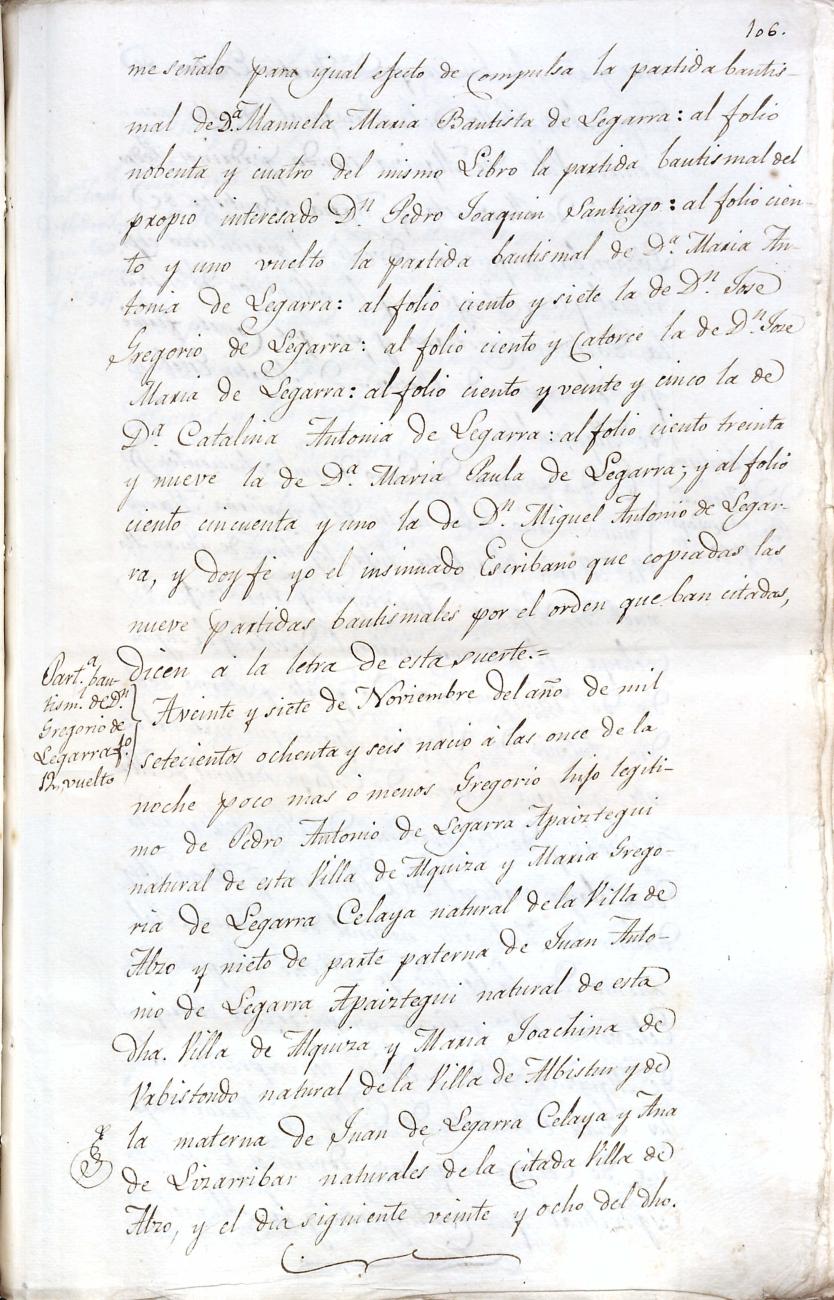 106.
me señalo para igual efecto de compulsa la partida bautis-
mal de D.ª Manuela Maria Bautista de Legarra: al folio
nobenta y cuatro del mismo Libro la partida bautismal del
propio interesado D.n Pedro Joaquin Santiago: al folio cien-
to y uno vuelto la partida bautismal de D.ª Maria An-
tonia de Legarra: al folio ciento y siete la de D.n Jose
Gregorio de Legarra: al folio ciento y Catorce la de D.n Jose
Maria de Legarra: al folio ciento y veinte y cinco la de
D.ª Catalina Antonia de Legarra: al folio ciento treinta
y nueve la de D.ª Maria Paula de Legarra; y al folio
ciento cincuenta y uno la de D.n Miguel Antonio de Legar-
ra, y doy fe yo el insinuado Escribano que copiadas las
nueve partidas bautismales por el orden que ban citadas,
dicen á la letra de esta suerte.=
Part.ª bau-
tism. de D.n
Gregorio de
Legarra fo
12, vuelto
A veinte y siete de Noviembre del año de mil
setecientos ochenta y seis nacio á las once de la
noche poco mas ó menos Gregorio hijo legiti-
mo de Pedro Antonio de Legarra Apaiztegui
natural de esta Villa de Alquiza y Maria Grego-
ria de Legarra Celaya natural de la Villa de
Abzo y nieto de parte paterna de Juan Anto-
nio de Legarra Apaiztegui natural de esta
dha. Villa de Alquiza y Maria Joachina de
Vrbistondo natural de la Villa de Albistur y de
la materna de Juan de Legarra Celaya y Ana
de Lizarribar naturales de la Citada Villa de
Abzo, y el dia siguiente veinte y ocho del dho.